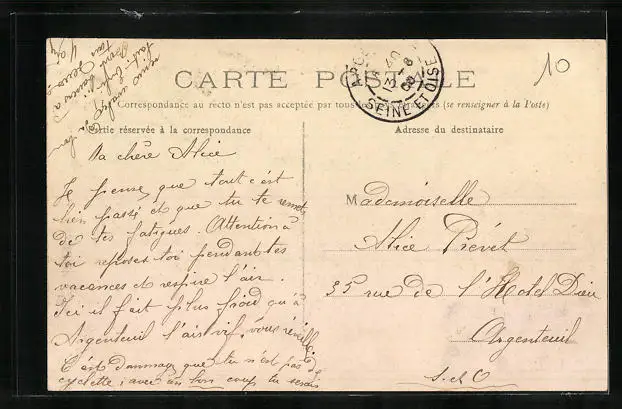 CARTE POSTALE
Correspondance au recto n'est pas acceptée par tous les (se renseigner à la Poste)
Partie réservée à la correspondance
Adresse du destinataire
SEINE ET OISE
10
Ma chère Alice
Je pense que tout c'est
bien passé et que tu te remets
de tes fatigues. Attention à
toi reposes toi pendant tes
vacances et respire l'air.
Ici il fait plus froid qu'à
Argenteuil l'air vif vous réveille.
C'est dommage que tu n'est pas de
cyclette; avec un bon coup tu serais
Mademoiselle
Alice Prévet
35 rue de l'Hotel Dieu
Argenteuil
S. et O